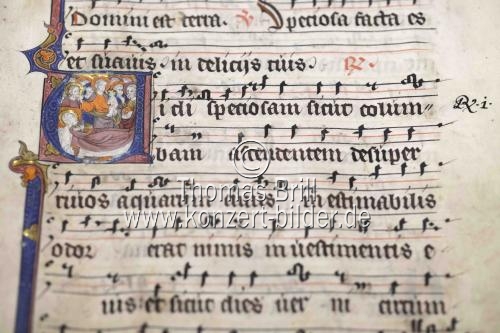 Domini est terra. V Speciosa facta es
et suavis in delicijs tuis. R
i di speciosam sicut colum=
R. i.
bam ascendentem desuper
rivos aquarum cuius inestimabilis
odor erat nimis in vestimentis e
ius et sicut dies ver ni circum
© Thomas Brill
www.konzert-bilder.de